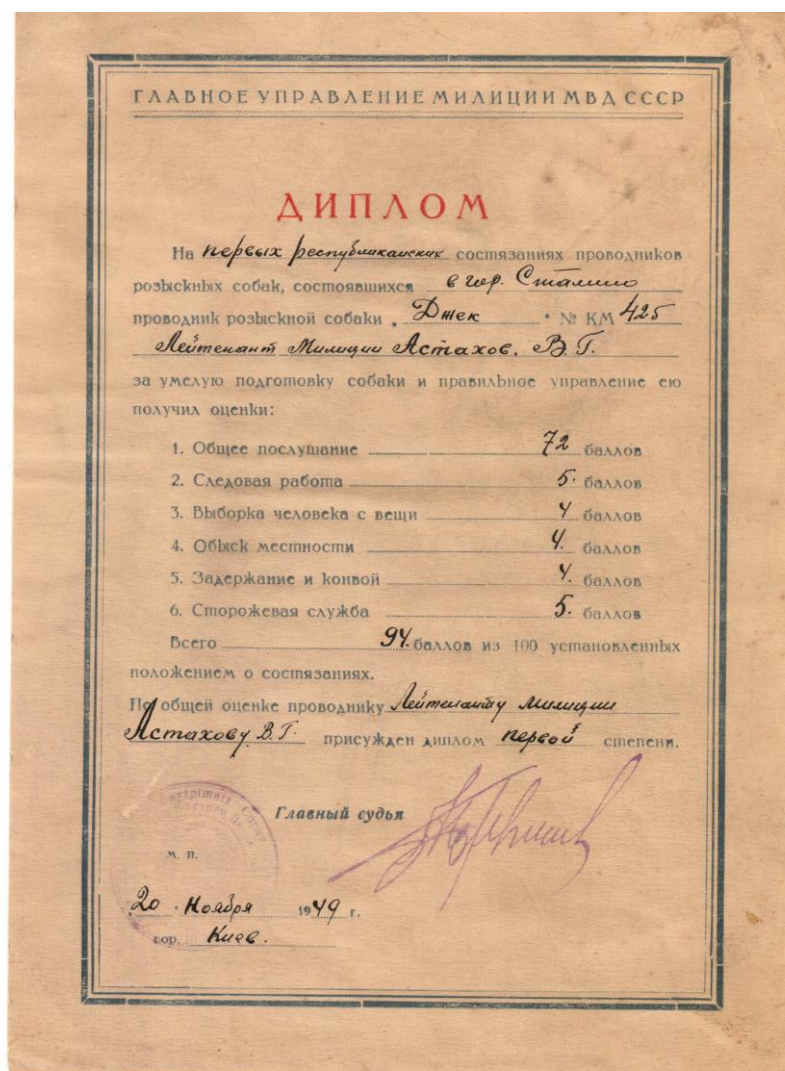 ГЛАВНОЕ УПРАВЛЕНИЕ МИЛИЦИИ МВД СССР
ДИПЛОМ
На первых республиканских состязаниях проводников
розыскных собак, состоявшихся в гор. Сталино
проводник розыскной собаки „Джек" № КМ 425
Лейтенант Милиции Астахов. В. Г.
за умелую подготовку собаки и правильное управление ею
получил оценки:
1. Общее послушание 72 баллов
2. Следовая работа 5. баллов
3. Выборка человека с вещи 4 баллов
4. Обыск местности 4. баллов
5. Задержание и конвой 4. баллов
6. Сторожевая служба 5. баллов
Всего 94. баллов из 100 установленных
положением о состязаниях.
По общей оценке проводнику Лейтенанту Милиции
Астахову В. Г. присужден диплом первой степени.
Главный судья
м. п.
„20" Ноября 1949 г.
гор. Киев.